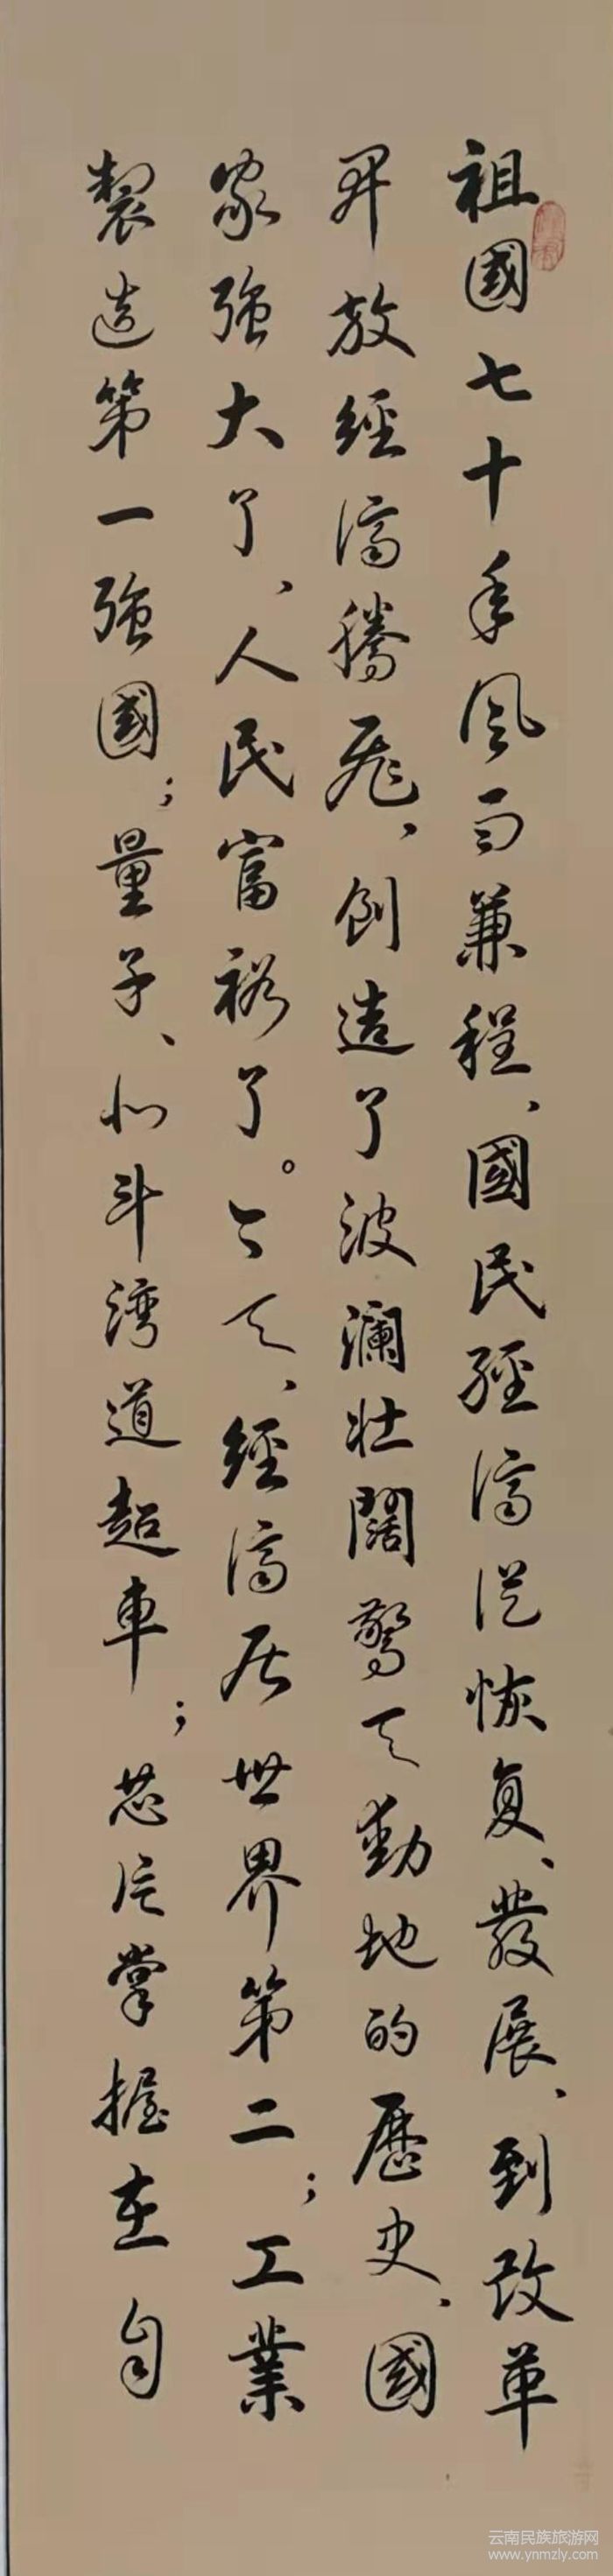 祖國七十年風雨兼程、國民經濟從恢复、發展、到改革
開放經濟騰飛、創造了波瀾壯闊驚天動地的歷史、國
家強大了、人民富裕了。今天、經濟居世界第二；工業
製造第一強國；量子、北斗湾道超車；芯片掌握在自
云南民族旅游网
www.ynmzly.com